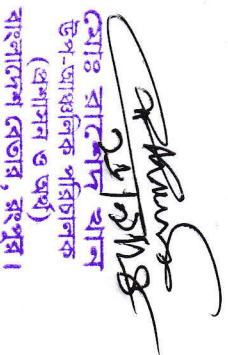 মোঃ রাশেদ খান
উপ-আঞ্চলিক পরিচালক
(প্রশাসন ও অর্থ)
বাংলাদেশ বেতার, রংপুর।